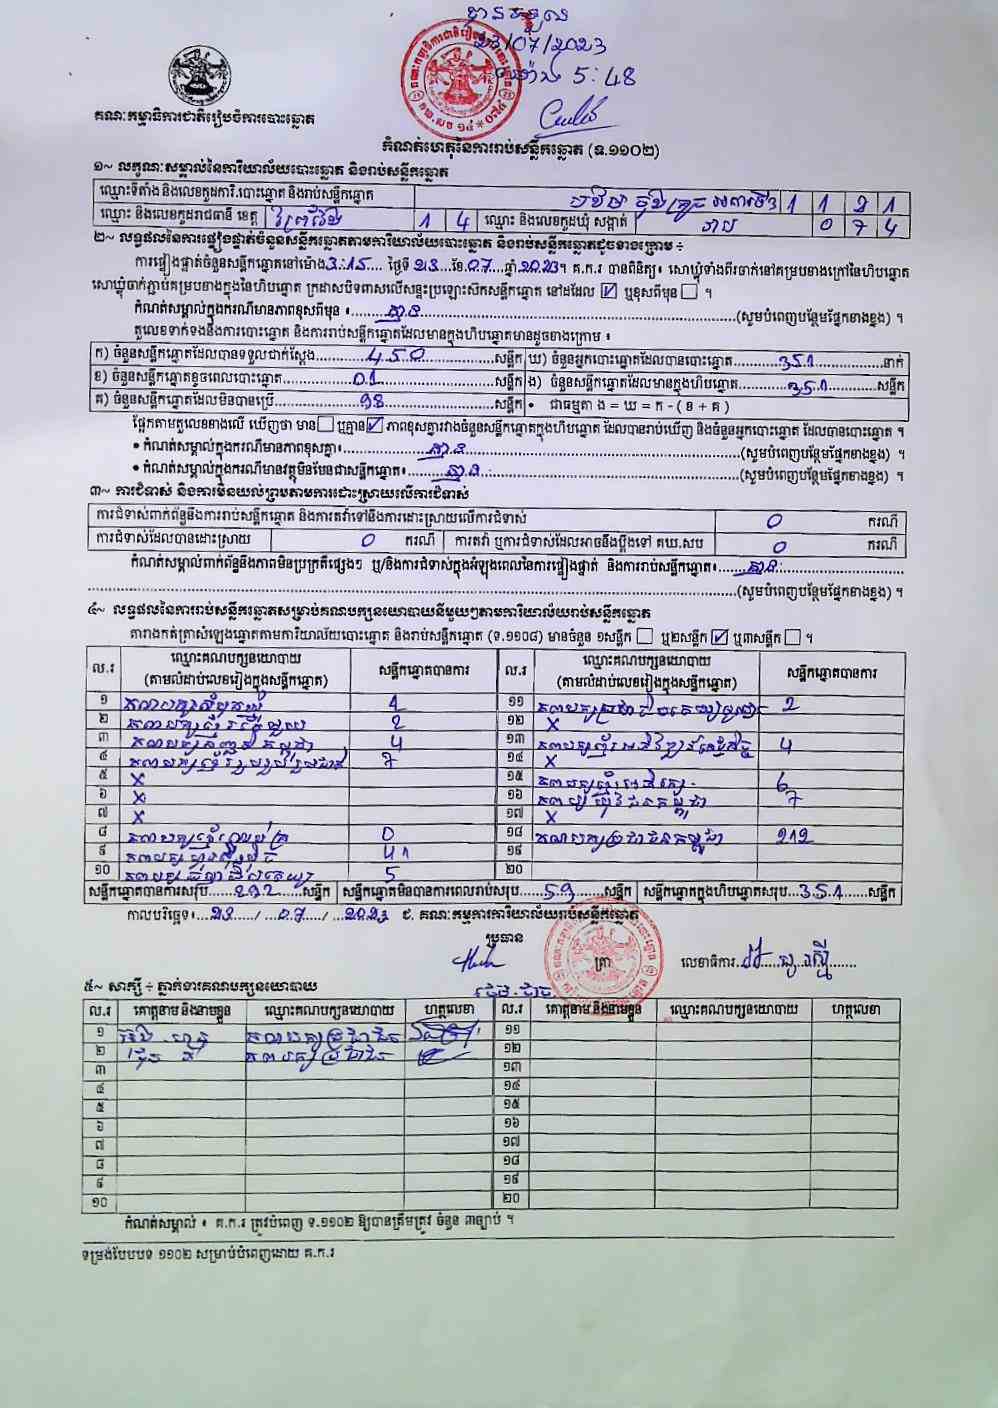 បានទទួល
23/07/2023
ម៉ោង 5:48
គណៈកម្មាធិការជាតិរៀបចំការបោះឆ្នោត
កំណត់ហេតុនៃការរាប់សន្លឹកឆ្នោត (ទ.១១០២)
១~ លក្ខណៈសម្គាល់នៃការិយាល័យបោះឆ្នោត និងរាប់សន្លឹកឆ្នោត
ឈ្មោះទីតាំង និងលេខកូដការិ.បោះឆ្នោត និងរាប់សន្លឹកឆ្នោត
ឈ្មោះ និងលេខកូដរាជធានី ខេត្ត ព្រៃវែង 1 4 ឈ្មោះ និងលេខកូដឃុំ សង្កាត់ 0 7 4
២~ លទ្ធផលនៃការផ្ទៀងផ្ទាត់ចំនួនសន្លឹកឆ្នោតតាមការិយាល័យបោះឆ្នោត និងរាប់សន្លឹកឆ្នោតដូចខាងក្រោម ÷
ការផ្ទៀងផ្ទាត់ចំនួនសន្លឹកឆ្នោតនៅម៉ោង 3:15 ថ្ងៃទី 23 ខែ 07 ឆ្នាំ 2023។ គ.ក.រ បានពិនិត្យ៖ សោឃ្មុំទាំងពីរចាក់នៅគម្របខាងក្រៅនៃហិបឆ្នោត
សោឃ្មុំចាក់ភ្ជាប់គម្របខាងក្នុងនៃហិបឆ្នោត ក្រដាសបិទពាសលើសន្ទះប្រឡោះសិកសន្លឹកឆ្នោត នៅដដែល ☑ ឬខុសពីមុន ☐ ។
កំណត់សម្គាល់ក្នុងករណីមានភាពខុសពីមុន ៖ គ្មាន (សូមបំពេញបន្ថែមផ្នែកខាងខ្នង) ។
តួលេខទាក់ទងនឹងការបោះឆ្នោត និងការរាប់សន្លឹកឆ្នោតដែលមានក្នុងហិបឆ្នោតមានដូចខាងក្រោម ៖
ក) ចំនួនសន្លឹកឆ្នោតដែលបានទទួលជាក់ស្តែង 450 សន្លឹក ឃ) ចំនួនអ្នកបោះឆ្នោតដែលបានបោះឆ្នោត 351 នាក់
ខ) ចំនួនសន្លឹកឆ្នោតខូចពេលបោះឆ្នោត 01 សន្លឹក ង) ចំនួនសន្លឹកឆ្នោតដែលមានក្នុងហិបឆ្នោត 351 សន្លឹក
គ) ចំនួនសន្លឹកឆ្នោតដែលមិនបានប្រើ 98 សន្លឹក • ជាធម្មតា ង = ឃ = ក - ( ខ + គ )
ផ្អែកតាមតួលេខខាងលើ ឃើញថា មាន ☐ ឬគ្មាន ☑ ភាពខុសគ្នារវាងចំនួនសន្លឹកឆ្នោតក្នុងហិបឆ្នោត ដែលបានរាប់ឃើញ និងចំនួនអ្នកបោះឆ្នោត ដែលបានបោះឆ្នោត ។
• កំណត់សម្គាល់ក្នុងករណីមានភាពខុសគ្នា៖ គ្មាន (សូមបំពេញបន្ថែមផ្នែកខាងខ្នង) ។
• កំណត់សម្គាល់ក្នុងករណីមានវត្ថុមិនមែនជាសន្លឹកឆ្នោត៖ គ្មាន (សូមបំពេញបន្ថែមផ្នែកខាងខ្នង) ។
៣~ ការជំទាស់ និងការមិនយល់ព្រមតាមការដោះស្រាយលើការជំទាស់
ការជំទាស់ពាក់ព័ន្ធនឹងការរាប់សន្លឹកឆ្នោត និងការតវ៉ាទៅនឹងការដោះស្រាយលើការជំទាស់ 0 ករណី
ការជំទាស់ដែលបានដោះស្រាយ 0 ករណី ការតវ៉ា ឬការជំទាស់ដែលអាចនឹងប្តឹងទៅ គឃ.សប 0 ករណី
កំណត់សម្គាល់ពាក់ព័ន្ធនឹងភាពមិនប្រក្រតីផ្សេងៗ ឬ/និងការជំទាស់ក្នុងអំឡុងពេលនៃការផ្ទៀងផ្ទាត់ និងការរាប់សន្លឹកឆ្នោត៖ គ្មាន
(សូមបំពេញបន្ថែមផ្នែកខាងខ្នង) ។
៤~ លទ្ធផលនៃការរាប់សន្លឹកឆ្នោតសម្រាប់គណបក្សនយោបាយនីមួយៗតាមការិយាល័យរាប់សន្លឹកឆ្នោត
តារាងកត់ត្រាសំឡេងឆ្នោតតាមការិយាល័យបោះឆ្នោត និងរាប់សន្លឹកឆ្នោត (ទ.១១០៨) មានចំនួន ១សន្លឹក ☐ ឬ២សន្លឹក ☑ ឬ៣សន្លឹក ☐ ។
ល.រ ឈ្មោះគណបក្សនយោបាយ (តាមលំដាប់លេខរៀងក្នុងសន្លឹកឆ្នោត) សន្លឹកឆ្នោតបានការ ល.រ ឈ្មោះគណបក្សនយោបាយ (តាមលំដាប់លេខរៀងក្នុងសន្លឹកឆ្នោត) សន្លឹកឆ្នោតបានការ
១ 1 ១១ 2
២ 2 ១២ X
៣ 4 ១៣ 4
៤ 7 ១៤ X
៥ X ១៥ 6
៦ X ១៦ 7
៧ X ១៧ X
៨ 0 ១៨ គណបក្សប្រជាជនកម្ពុជា 212
៩ 41 ១៩
១០ 5 ២០
សន្លឹកឆ្នោតបានការសរុប 292 សន្លឹក សន្លឹកឆ្នោតមិនបានការពេលរាប់សរុប 59 សន្លឹក សន្លឹកឆ្នោតក្នុងហិបឆ្នោតសរុប 351 សន្លឹក
កាលបរិច្ឆេទ៖ 23 / 07 / 2023 ជ. គណៈកម្មការការិយាល័យរាប់សន្លឹកឆ្នោត
ប្រធាន
ត្រា លេខាធិការ
៥~ សាក្សី ÷ ភ្នាក់ងារគណបក្សនយោបាយ
ល.រ គោត្តនាម និងនាមខ្លួន ឈ្មោះគណបក្សនយោបាយ ហត្ថលេខា ល.រ គោត្តនាម និងនាមខ្លួន ឈ្មោះគណបក្សនយោបាយ ហត្ថលេខា
១ គណបក្សប្រជាជន ១១
២ គណបក្សប្រជាជន ១២
៣ ១៣
៤ ១៤
៥ ១៥
៦ ១៦
៧ ១៧
៨ ១៨
៩ ១៩
១០ ២០
កំណត់សម្គាល់ ៖ គ.ក.រ ត្រូវបំពេញ ទ.១១០២ ឱ្យបានត្រឹមត្រូវ ចំនួន ៣ច្បាប់ ។
ទម្រង់បែបបទ ១១០២ សម្រាប់បំពេញដោយ គ.ក.រ